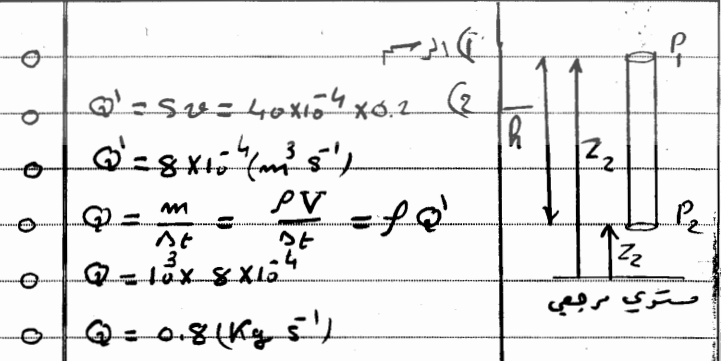 1) الرسم
2) Q' = Sv = 40×10⁻⁴ × 0.2
Q' = 8×10⁻⁴ (m³ s⁻¹)
Q = m/Δt = ρV/Δt = ρ Q'
Q = 10³ × 8×10⁻⁴
Q = 0.8 (Kg s⁻¹)
P₁
h
Z₂
P₂
Z₂
مستوي مرجعي